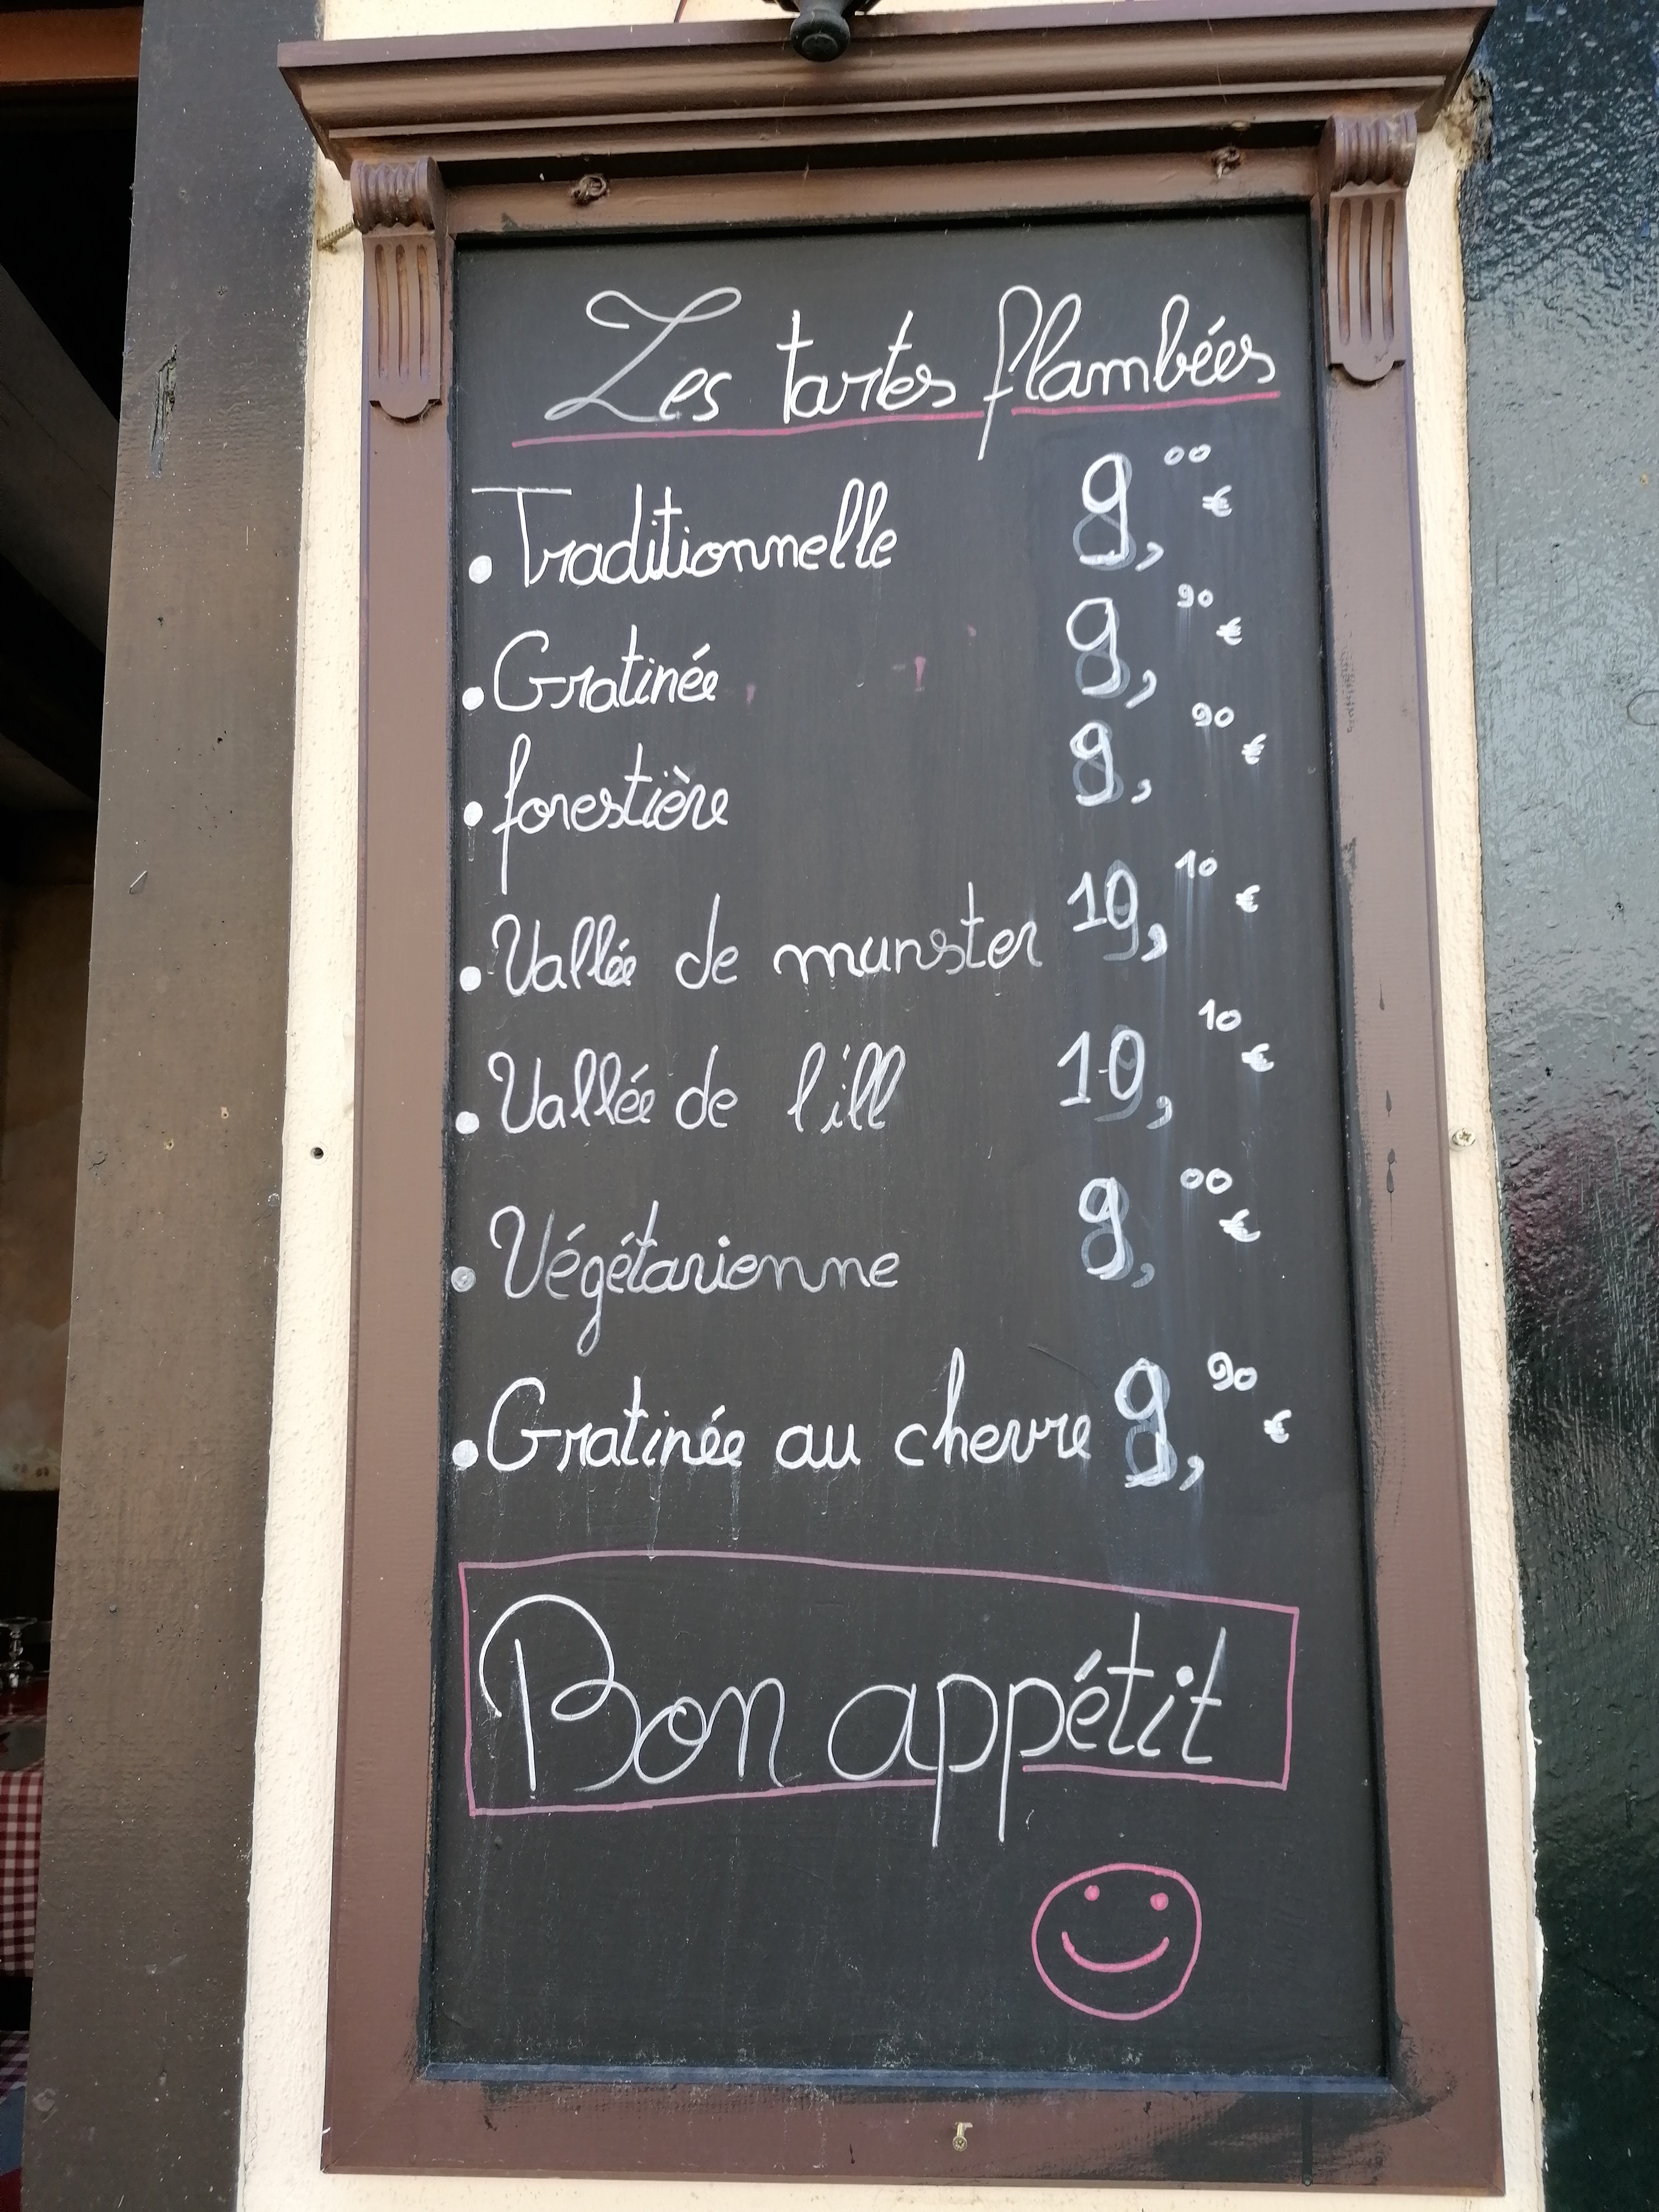 Les tartes flambées
• Traditionnelle 9,00 €
• Gratinée 9,90 €
• forestière 9,90 €
• Vallée de munster 10,10 €
• Vallée de l'ill 10,10 €
• Végétarienne 9,00 €
• Gratinée au chevre 9,90 €
Bon appétit